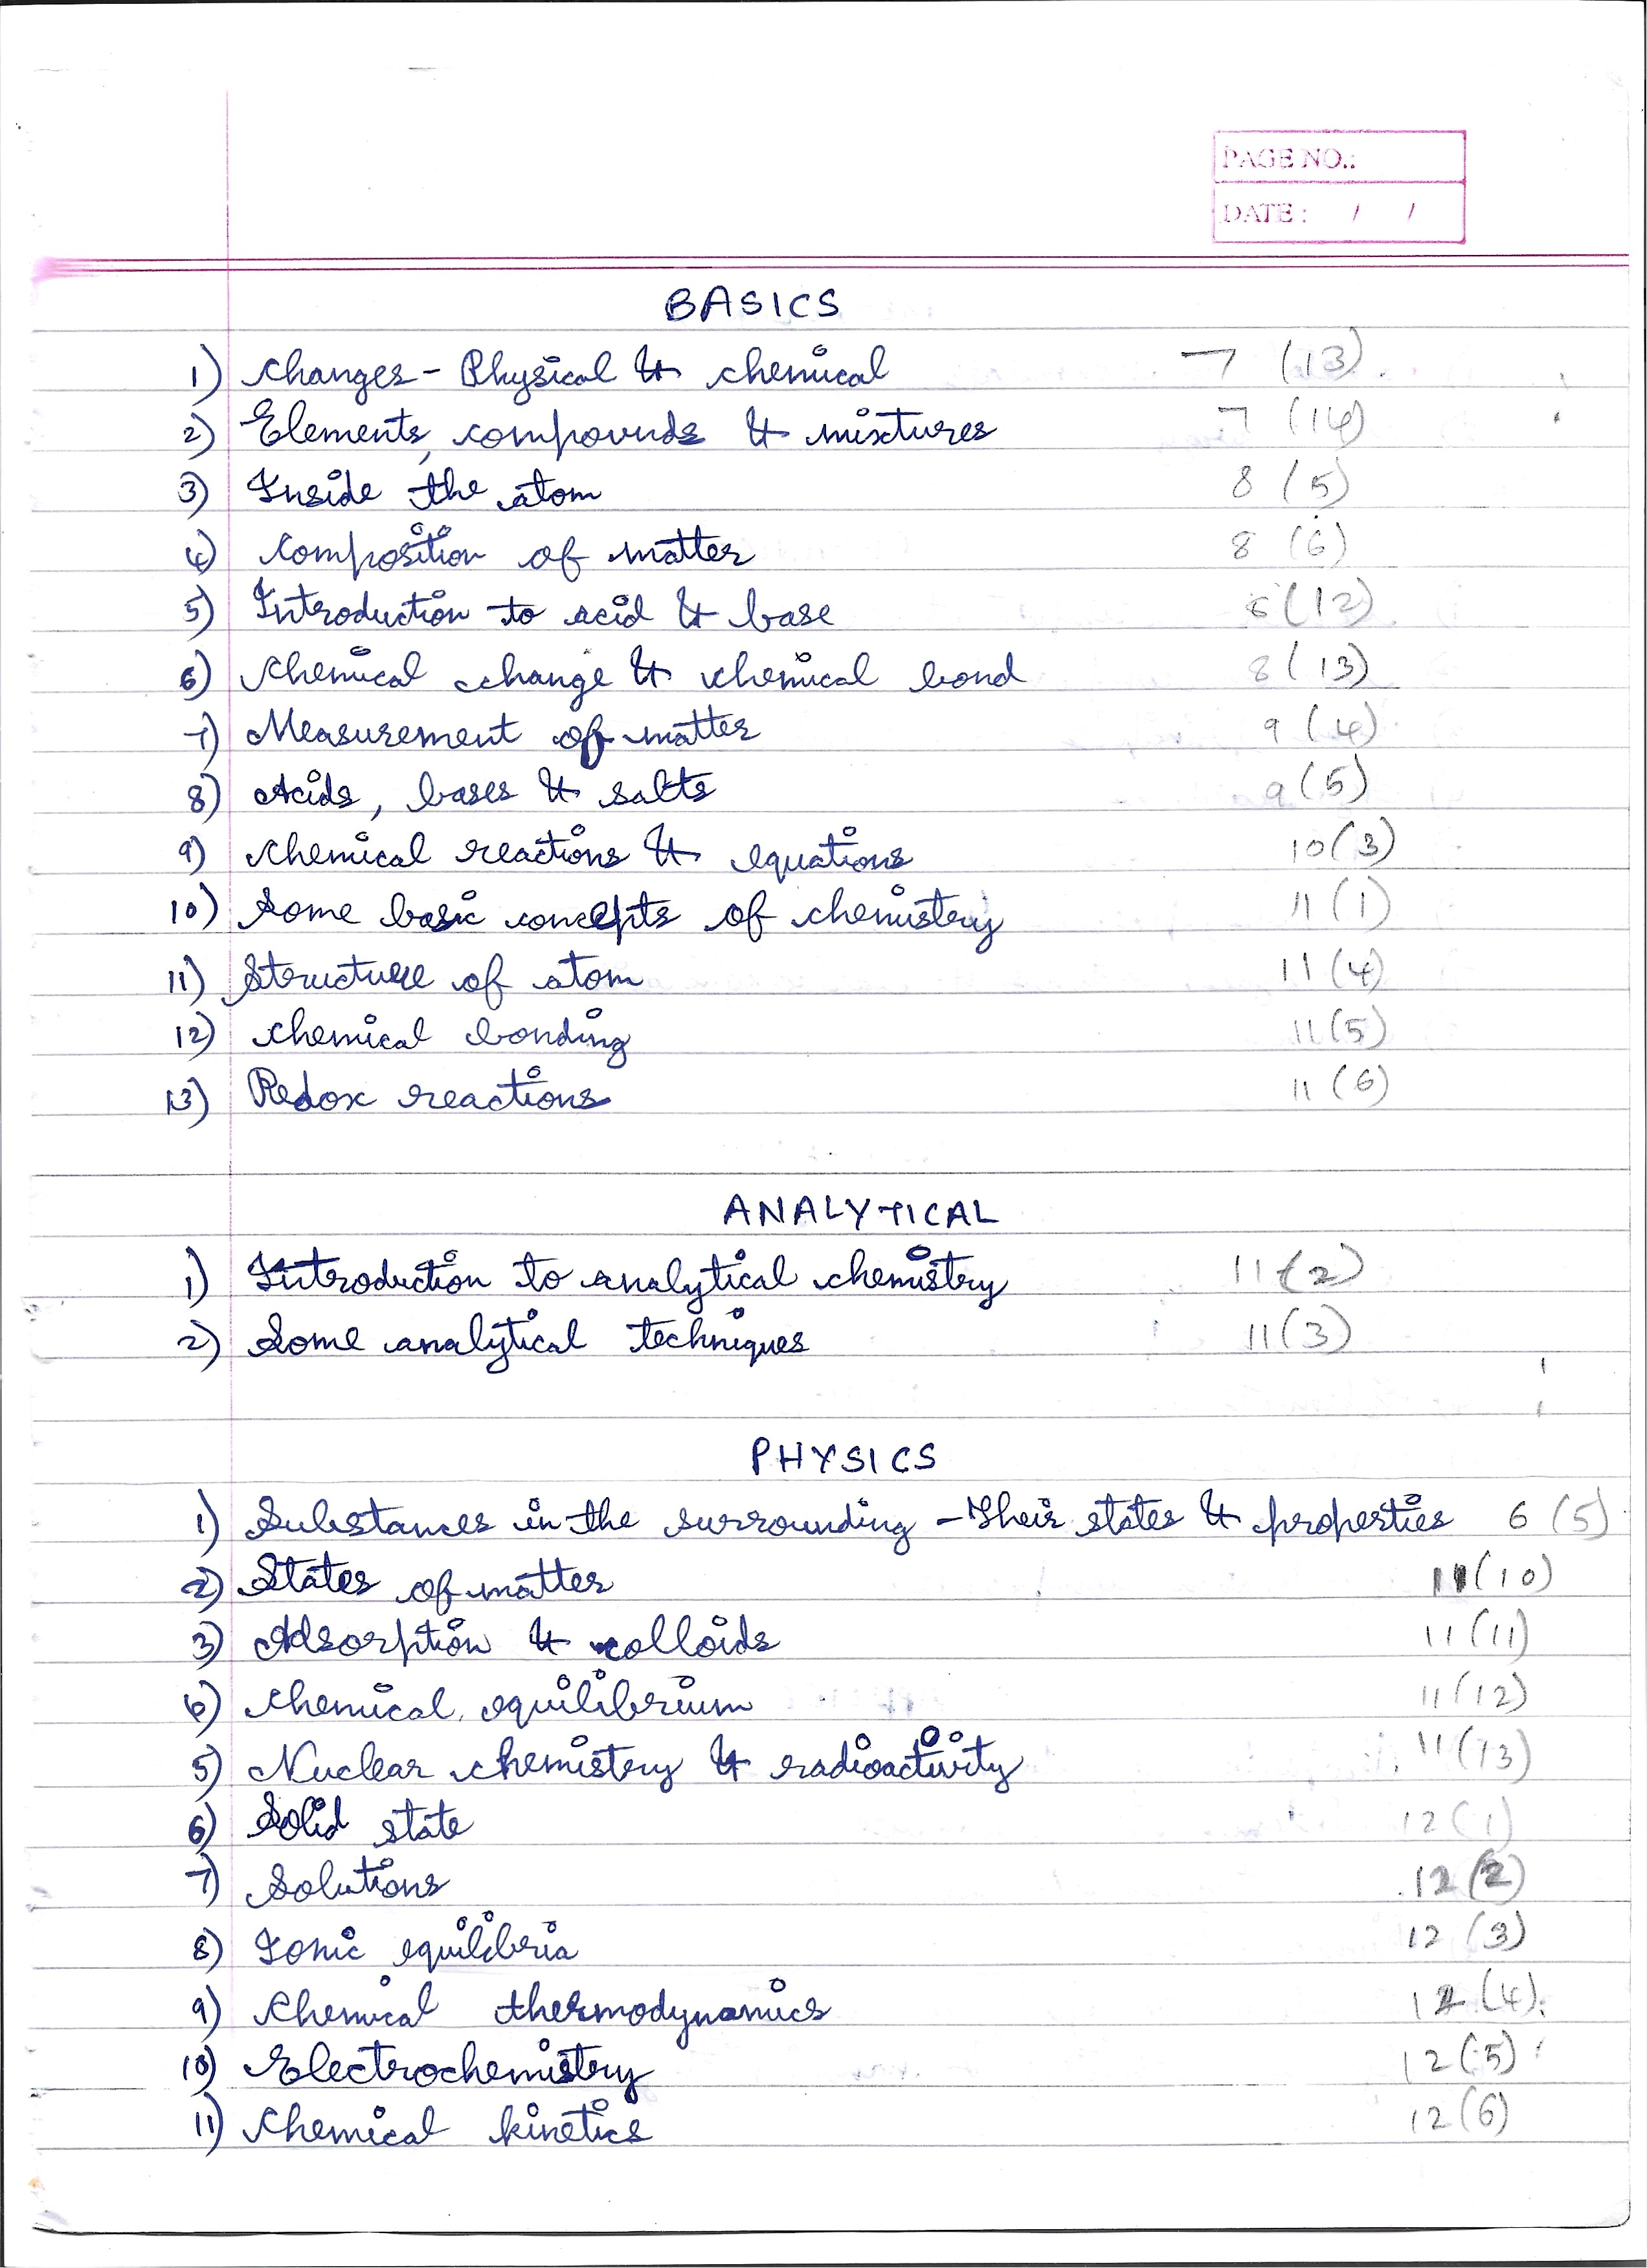 PAGE NO.:
DATE : / /
BASICS
1) Changes - Physical & chemical 7 (13)
2) Elements, compounds & mixtures 7 (14)
3) Inside the atom 8 (5)
4) Composition of matter 8 (6)
5) Introduction to acid & base (12)
6) Chemical change & chemical bond 8 (13)
7) Measurement of matter 9 (4)
8) Acids, bases & salts 9 (5)
9) Chemical reactions & equations 10 (3)
10) Some basic concepts of chemistry 11 (1)
11) Structure of atom 11 (4)
12) Chemical bonding 11 (5)
13) Redox reactions 11 (6)
ANALYTICAL
1) Introduction to analytical chemistry 11 (2)
2) Some analytical techniques 11 (3)
PHYSICS
1) Substances in the surrounding - Their states & properties 6 (5)
2) States of matter 11 (10)
3) Adsorption & colloids 11 (11)
4) Chemical equilibrium 11 (12)
5) Nuclear chemistry & radioactivity 11 (13)
6) Solid state 12 (1)
7) Solutions 12 (2)
8) Ionic equilibria 12 (3)
9) Chemical thermodynamics 12 (4)
10) Electrochemistry 12 (5)
11) Chemical kinetics 12 (6)